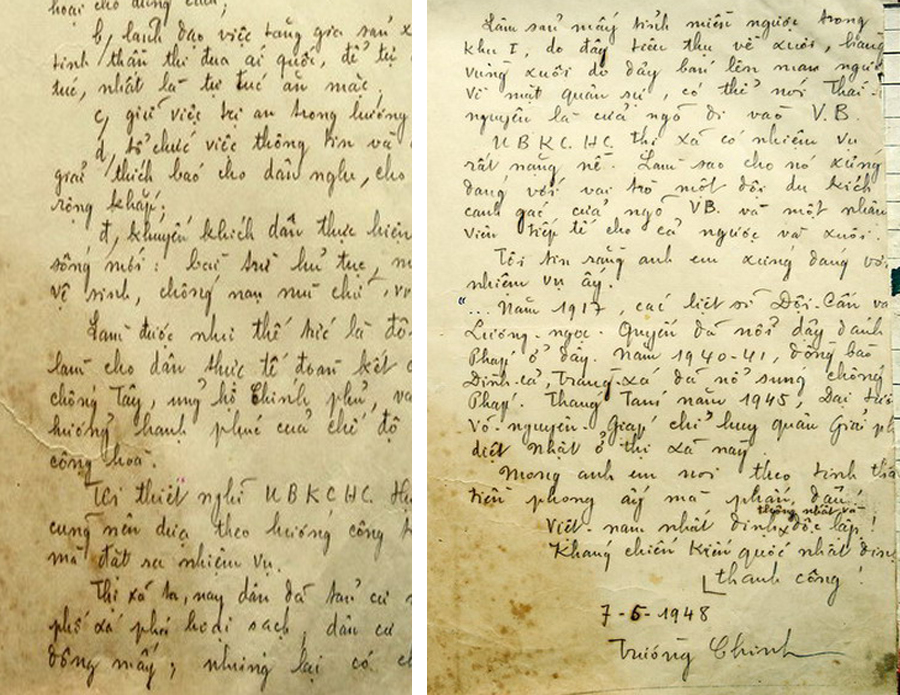 hoại cho đúng cách;
b, lãnh đạo việc tăng gia sản x
tinh thần thi đua ái quốc, để tự
túc, nhất là tự túc ăn mặc.
c, giữ việc trị an trong hương
d, tổ chức việc thông tin và
giải thích báo cho dân nghe, cho
rộng khắp;
đ, khuyến khích dân thực hiện
sống mới: bài trừ hủ tục, m
vệ sinh, chống nạn mù chữ, vv
Làm được như thế tức là đã
làm cho dân thực tế đoàn kết
chống Tây, ủng hộ Chính phủ, và
hưởng hạnh phúc của chế độ
cộng hoà.
Tôi thiết nghĩ U B K C H C.
cũng nên dựa theo hướng công t
mà đặt ra nhiệm vụ.
Thị xã ta, nay dân đã tản cư
phố xá phá hoại sạch, dân cư
đông mấy; nhưng lại có
Lâm sản mấy tỉnh miền ngược trong
khu I, do đây tiêu thụ về xuôi, hàng
vùng xuôi do đây bán lên mạn ngược
Về mặt quân sự, có thể nói Thái-
nguyên là cửa ngõ đi vào V.B.
U B K C. H C. thị xã có nhiệm vụ
rất nặng nề. Làm sao cho nó xứng
đáng với vai trò một đội du kích
canh gác cửa ngõ VB. và một nhân
viên tiếp tế cho cả ngược và xuôi.
Tôi tin rằng anh em xứng đáng với
nhiệm vụ ấy.
"... Năm 1917, các liệt sĩ Đội-Cấn và
Lương-ngọc-Quyến đã nổi dậy đánh
Pháp ở đây. Năm 1940-41, đồng bào
Đình-cả, Tràng-xá đã nổ súng chống
Pháp. Tháng Tám năm 1945, Đại tướ
Võ-nguyên-Giáp chỉ huy quân Giải ph
diệt Nhật ở thị xã này.
Mong anh em noi theo tinh thầ
tiền phong ấy mà phấn đấu!
thống nhất và
Việt-nam nhất định độc lập!
Kháng chiến Kiến quốc nhất địn
thành công!
7-5-1948
Trường Chinh